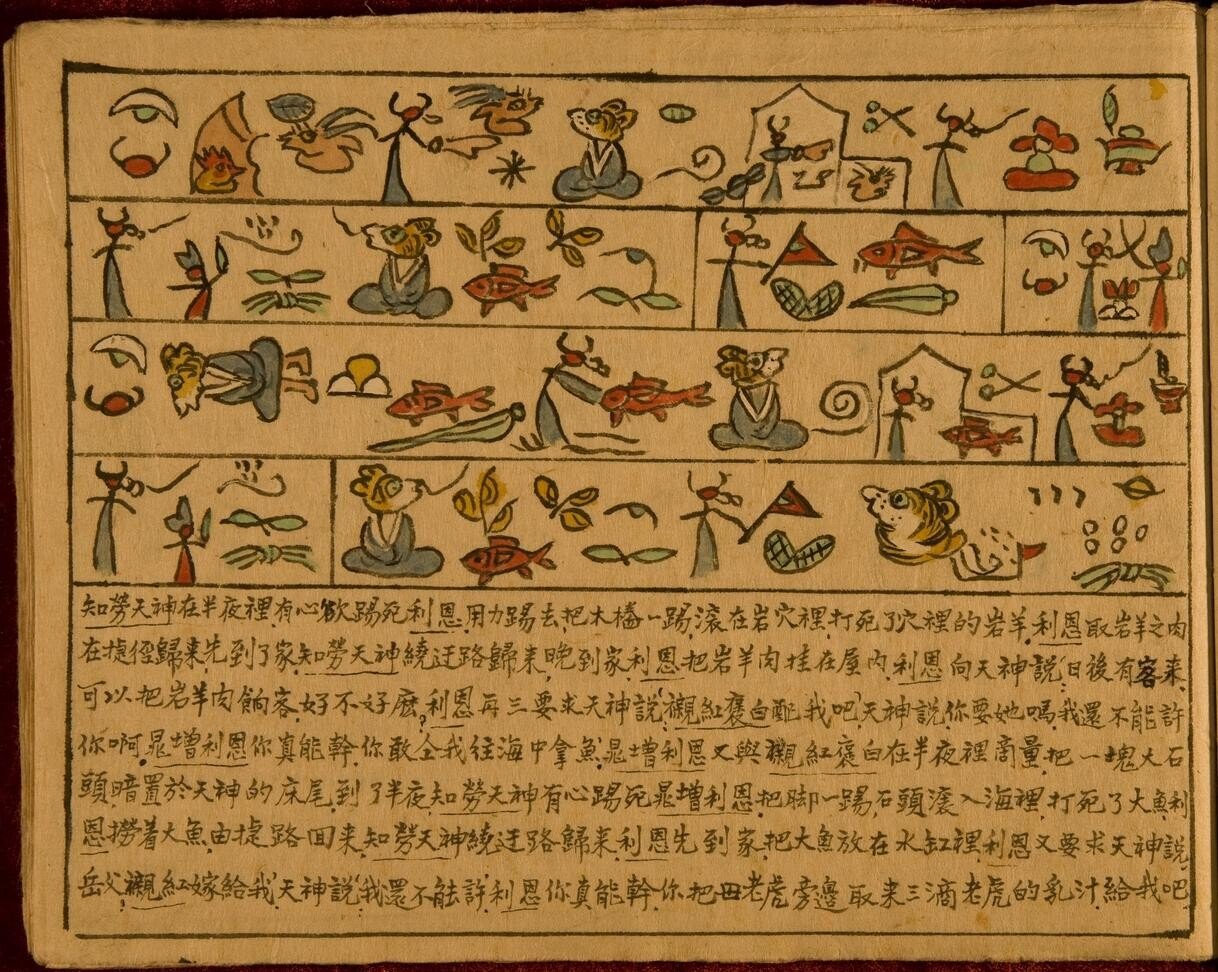 知勞天神在半夜裡有心欲踢死利恩用力踢去把木樁一踢滾在岩穴裡打死了穴裡的岩羊利恩取岩羊之肉
在捷徑歸来先到了家知勞天神繞迂路歸来晚到家利恩把岩羊肉挂在屋內利恩向天神說日後有客来
可以把岩羊肉餉客好不好麽利恩再三要求天神說襯紅褒白配我吧天神說你要她嗎我還不能許
你啊晁增利恩你真能幹你敢仝我往海中拿魚晁增利恩又與襯紅褒白在半夜裡商量把一塊大石
頭暗置於天神的床尾到了半夜知勞天神有心踢死晁增利恩把脚一踢石頭滾入海裡打死了大魚利
恩撈着大魚由捷路回来知勞天神繞迂路歸来利恩先到家把大魚放在水缸裡利恩又要求天神說
岳父襯紅嫁給我天神說我還不能許利恩你真能幹你把母老虎旁邊取来三滴老虎的乳汁給我吧